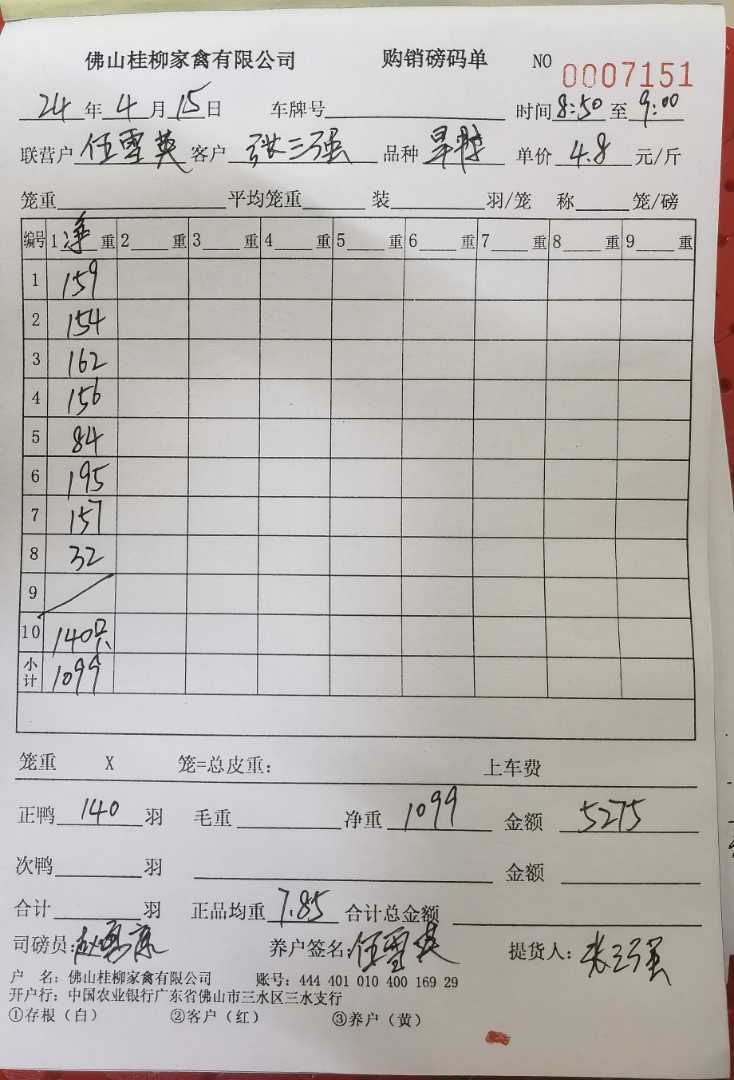 佛山桂柳家禽有限公司 购销磅码单 NO 0007151
24年4月15日 车牌号 时间8:50至9:00
联营户 任雪英 客户 张三强 品种 旱鸭 单价 4.8 元/斤
笼重 平均笼重 装 羽/笼 称 笼/磅
编号 1净重 2 重 3 重 4 重 5 重 6 重 7 重 8 重 9 重
1 159
2 154
3 162
4 156
5 84
6 195
7 157
8 32
9
10 140只
小计 1099
笼重 X 笼=总皮重: 上车费
正鸭 140 羽 毛重 净重 1099 金额 5275
次鸭 羽 金额
合计 羽 正品均重 7.85 合计总金额
司磅员: 养户签名: 任雪英 提货人: 张三强
户 名: 佛山桂柳家禽有限公司 账号: 444 401 010 400 169 29
开户行: 中国农业银行广东省佛山市三水区三水支行
①存根(白) ②客户(红) ③养户(黄)